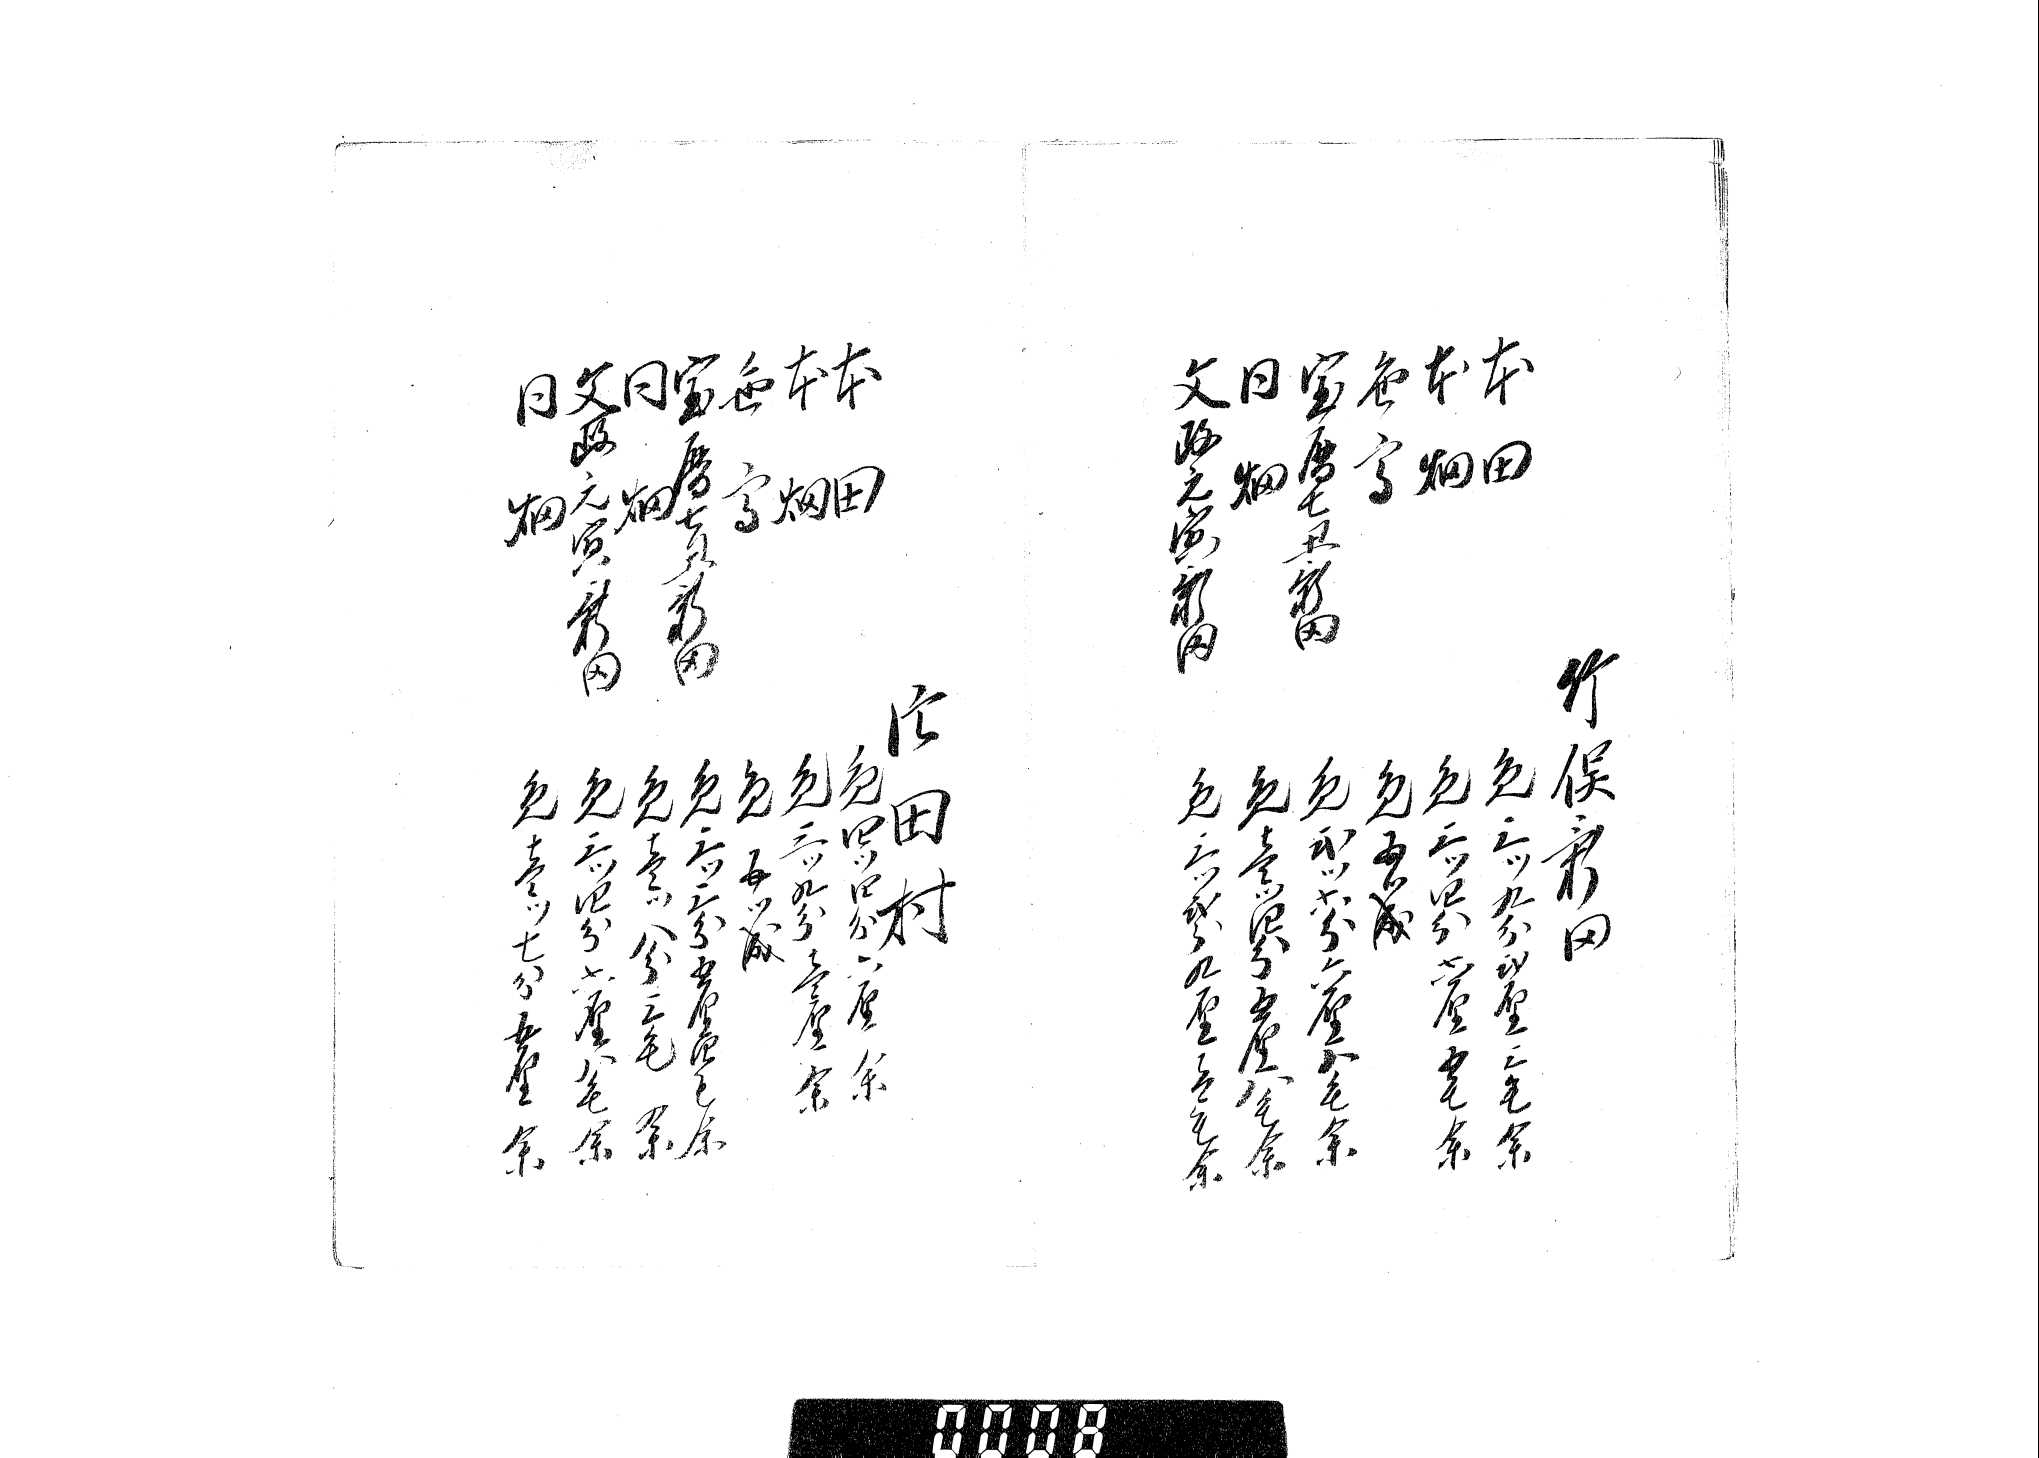 竹俣新田
本田 免三ツ九分弐厘三毛余
本畑 免三ツ四分七厘五毛余
色高 免五ツ成
宝暦七丑新田 免弐ツ七分六厘八毛余
同畑 免壱ツ四分五厘八毛余
文政元寅新田 免三ツ弐分九厘三毛余
田村
本田 免四ツ四分六厘余
本畑 免三ツ九分壱厘余
色高 免五ツ成
宝暦七丑新田 免三ツ三分五厘四毛余
同畑 免壱ツ八分三毛余
文政元寅新田 免三ツ四分七厘八毛余
同畑 免壱ツ七分五厘余
0008